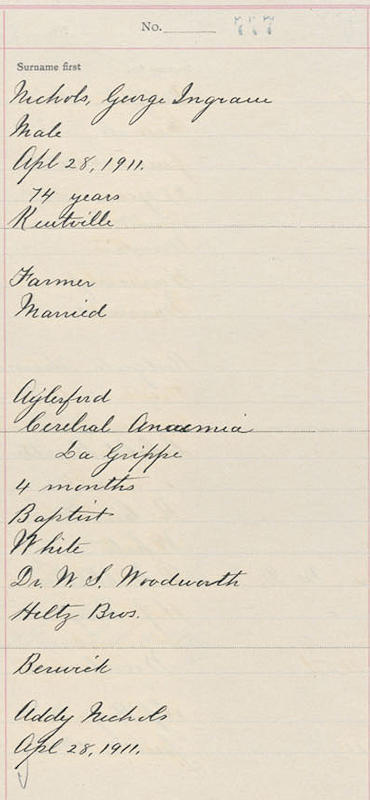 No. 777
Surname first
Nichols, George Ingram
Male
Apl 28, 1911.
74 years
Kentville
Farmer
Married
Aylerford
Cerebral Anaemia
La Grippe
4 months
Baptist
White
Dr. W. S. Woodworth
Hiltz Bros.
Berwick
Addy Nichols
Apl 28, 1911.